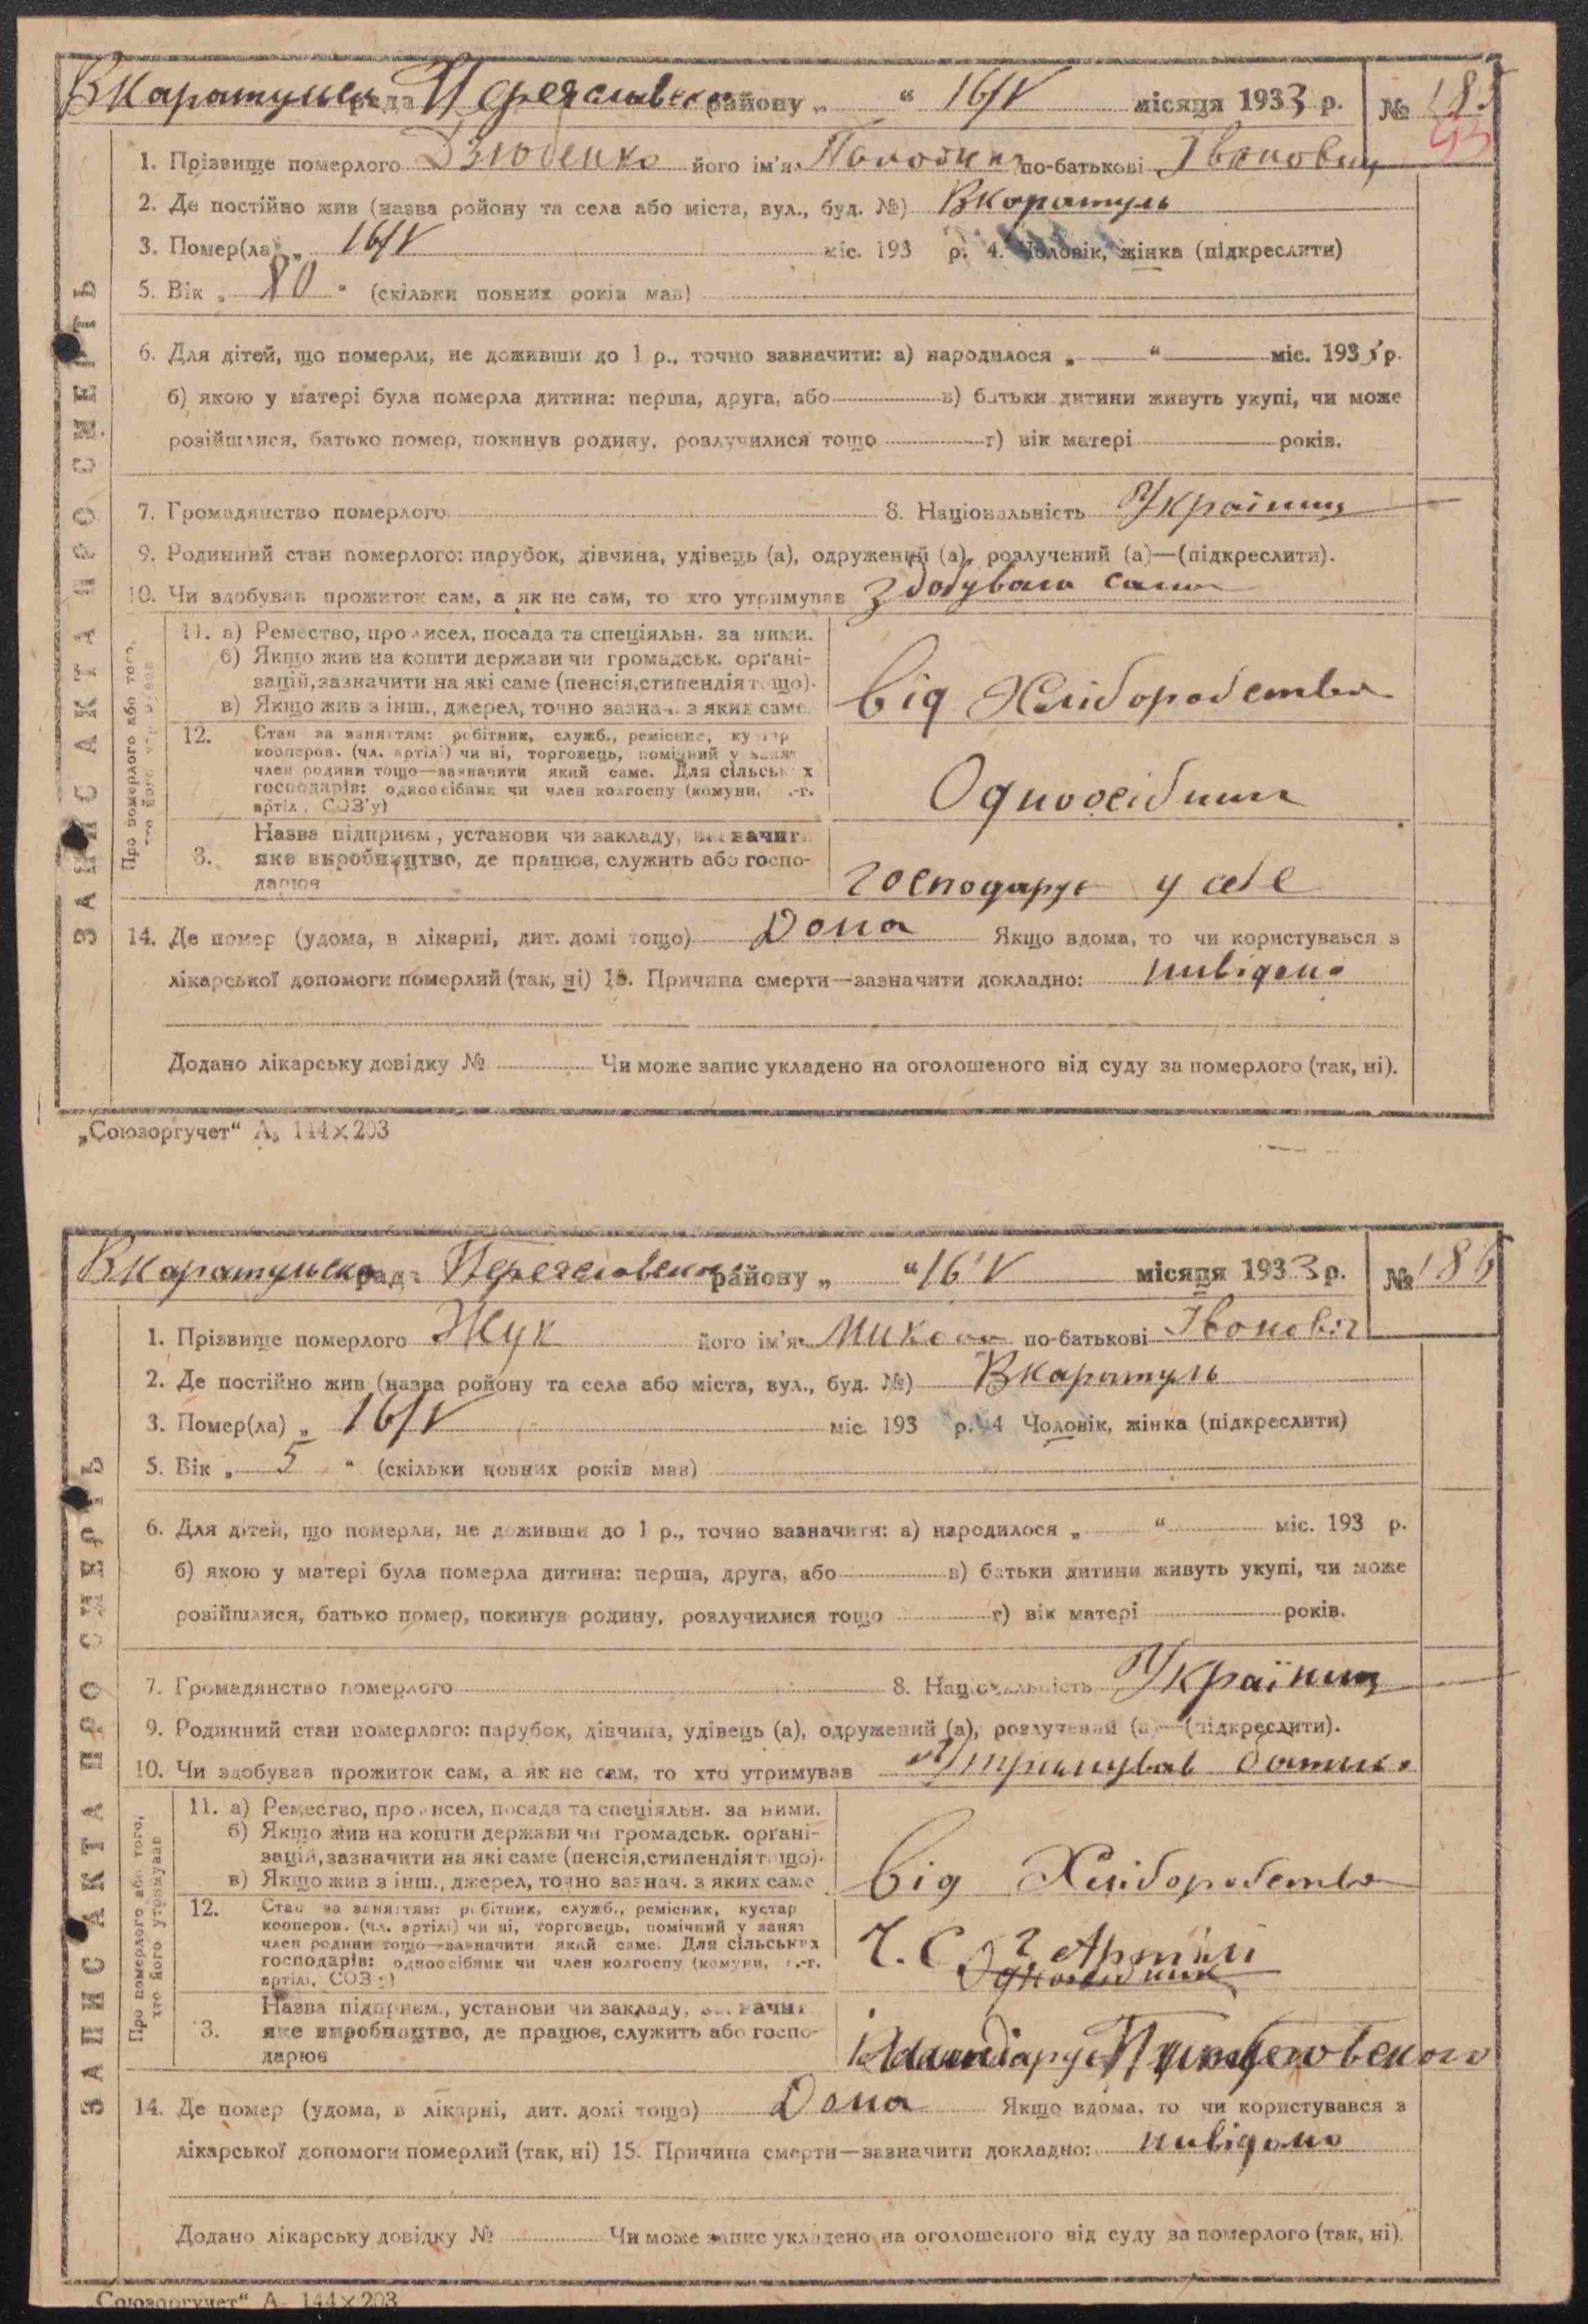 ЗАПИС АКТА ПРО СМЕРТЬ
Вкаратульська рада Переяславськ району „ “ 16/V місяця 1933 р. № 185
93
1. Прізвище померлого Дзюбенко його ім'я по-батькові Івановиц
2. Де постійно жив (назва ройону та села або міста, вул., буд. №) Вкаратуль
3. Помер(ла) „ 16/V міс. 193 р. 4. Чоловік, жінка (підкреслити)
5. Вік „ 80 “ (скільки повних років мав)
6. Для дітей, що померли, не доживши до 1 р., точно зазначити: а) народилося „ “ міс. 193 р.
б) якою у матері була померла дитина: перша, друга, або в) батьки дитини живуть укупі, чи може
розійшлися, батько помер, покинув родину, розлучилися тощо г) вік матері років.
7. Громадянство померлого 8. Національність Україниц
9. Родинний стан померлого: парубок, дівчина, удівець (а), одружений (а), розлучений (а)—(підкреслити).
10. Чи здобував прожиток сам, а як не сам, то хто утримував здобувала сама
Про померлого або того, хто його утримував
11. а) Ремество, промисел, посада та спеціяльн. за ними.
б) Якщо жив на кошти держави чи громадськ. органі-
зацій, зазначити на які саме (пенсія, стипендія тощо).
в) Якщо жив з інш., джерел, точно зазнач. з яких саме.
від Хліборобства
12. Стан за заняттям: робітник, служб., ремісник, кустар
кооперов. (чл. артілі) чи ні, торговець, помічний у занят
член родини тощо—зазначити який саме. Для сільських
господарів: одноосібник чи член колгоспу (комуни, с.-г.
артіл., СОЗ'у)
Одноосібник
3. Назва підприєм., установи чи закладу, зазначити
яке виробництво, де працює, служить або госпо-
дарює
господарує у себе
14. Де помер (удома, в лікарні, дит. домі тощо) Дома Якщо вдома, то чи користувався з
лікарської допомоги померлий (так, ні) 15. Причина смерти—зазначити докладно: нивідомо
Додано лікарську довідку № Чи може запис укладено на оголошеного від суду за померлого (так, ні).
„Союзоргучет“ А₅ 144×203
ЗАПИС АКТА ПРО СМЕРТЬ
Вкаратульська рада Переяславськ району „ “ 16 V місяця 1933 р. № 186
1. Прізвище померлого Жук його ім'я Микола по-батькові Іванович
2. Де постійно жив (назва ройону та села або міста, вул., буд. №) Вкаратуль
3. Помер(ла) „ 16/V міс. 193 р. 4 Чоловік, жінка (підкреслити)
5. Вік „ 5 “ (скільки повних років мав)
6. Для дітей, що померли, не доживши до 1 р., точно зазначити: а) народилося „ “ міс. 193 р.
б) якою у матері була померла дитина: перша, друга, або в) батьки дитини живуть укупі, чи може
розійшлися, батько помер, покинув родину, розлучилися тощо г) вік матері років.
7. Громадянство померлого 8. Національність Україниц
9. Родинний стан померлого: парубок, дівчина, удівець (а), одружений (а), розлучений (а)—(підкреслити).
10. Чи здобував прожиток сам, а як не сам, то хто утримував Утримував батько
Про померлого або того, хто його утримував
11. а) Ремество, промисел, посада та спеціяльн. за ними.
б) Якщо жив на кошти держави чи громадськ. органі-
зацій, зазначити на які саме (пенсія, стипендія тощо).
в) Якщо жив з інш., джерел, точно зазнач. з яких саме
від Хліборобства
12. Стан за заняттям: робітник, служб., ремісник, кустар
кооперов. (чл. артілі) чи ні, торговець, помічний у занят
член родини тощо—зазначити який саме. Для сільських
господарів: одноосібник чи член колгоспу (комуни, с.-г.
артілі, СОЗ'у)
Ч. С. Г Артілі
Одноосібник
3. Назва підприєм., установи чи закладу, зазначити
яке виробництво, де працює, служить або госпо-
дарює
14. Де помер (удома, в лікарні, дит. домі тощо) Дома Якщо вдома, то чи користувався з
лікарської допомоги померлий (так, ні) 15. Причина смерти—зазначити докладно: нивідомо
Додано лікарську довідку № Чи може запис укладено на оголошеного від суду за померлого (так, ні).
„Союзоргучет“ А₅ 144×203